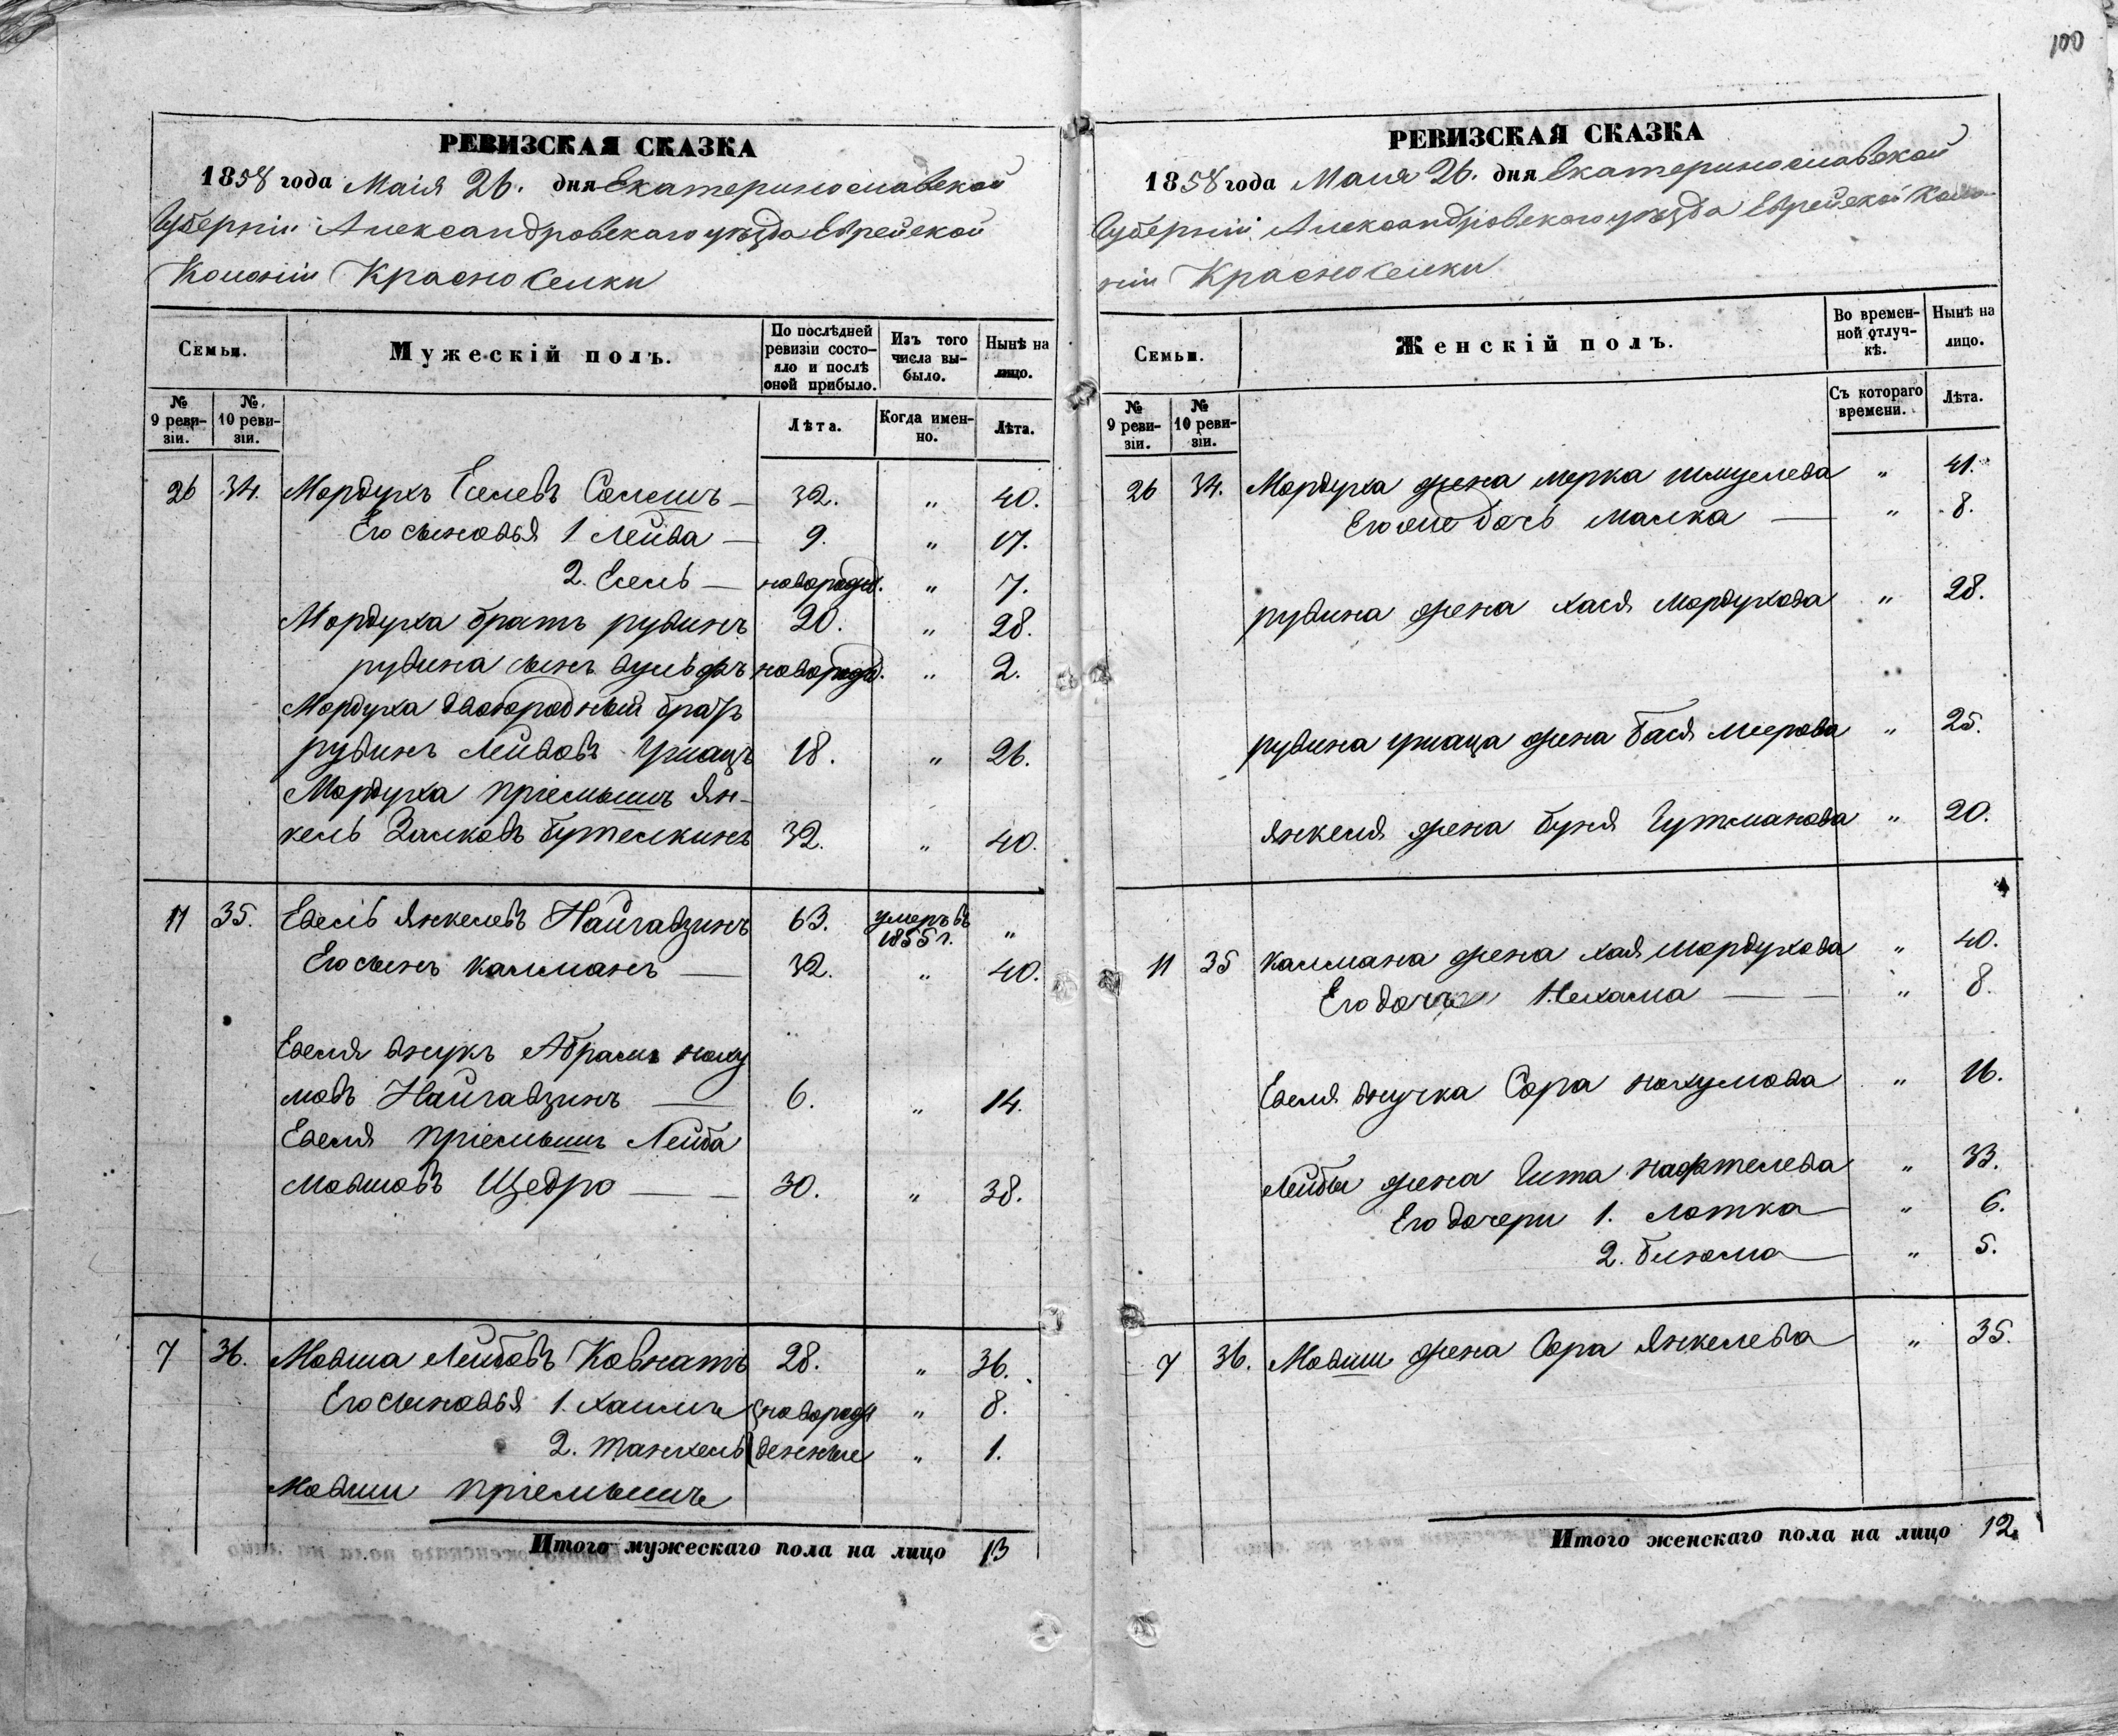 100
РЕВИЗСКАЯ СКАЗКА
1858 года Маія 26. дня Екатеринославской
Губерніи Александровскаго уѣзда Еврейской
Колоніи Красноселки
Семьи.
Мужескій полъ.
По послѣдней ревизіи состояло и послѣ оной прибыло.
Изъ того числа выбыло.
Нынѣ на лицо.
№ 9 ревизіи.
№ 10 ревизіи.
Лѣта.
Когда именно.
Лѣта.
26 34. Мордухъ Еселевъ — 32. „ 40.
Его сыновья 1 Лейва — 9. „ 17.
2. Есель — новорожд. „ 7.
Мордуха братъ рувинъ 20. „ 28.
рувина сынъ вульфъ новорожд. „ 2.
Мордуха двоюродный братъ
рувинъ Лейвовъ 18. „ 26.
Мордуха пріемышъ Ян-
кель Залковъ Бутелкинъ 32. „ 40.
11 35. Евель Янкелевъ Найгавзинъ 63. умеръ въ 1855 г. „
Его сынъ калманъ — 32. „ 40.
Евеля внукъ Абрамъ наху
мовъ Найгавзинъ — 6. „ 14.
Евеля пріемышъ Лейба
Мовшовъ Щедро — — 30. „ 38.
7 36. Мовша Лейбовъ Ковнатъ 28. „ 36.
Его сыновья 1. хаимъ новорож „ 8.
2. танхель денные „ 1.
Мовши пріемышъ
Итого мужескаго пола на лицо 13
РЕВИЗСКАЯ СКАЗКА
1858 года Маія 26. дня Екатеринославской
Губерніи Александровскаго уѣзда Еврейской Коло-
ніи Красноселки
Семьи.
Женскій полъ.
Во временной отлучкѣ.
Нынѣ на лицо.
№ 9 ревизіи.
№ 10 ревизіи.
Съ котораго времени.
Лѣта.
26 34. Мордуха жена мерка шмулева „ 41.
Его же дочь малка — „ 8.
рувина жена хася Мордухова „ 28.
рувина жена бася меерова „ 25.
янкеля жена буня Гутманова „ 20.
11 35 калмана жена хая мордухова „ 40.
Его дочь Нехама — — „ 8.
Евеля внучка Сора нахумова „ 16.
Лейбы жена Гита нафтелева „ 33.
Его дочери 1. лотка — „ 6.
2. блюма — „ 5.
7 36. Мовши жена Сора янкелева „ 35.
Итого женскаго пола на лицо 12.